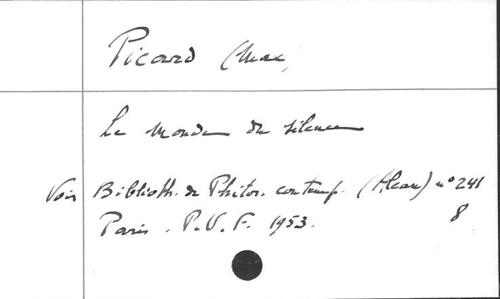 Picard (Max)
Le monde du silence
Voir Biblioth. de Philos. contemp. (Alcan) n° 241
8
Paris. P.U.F. 1953.